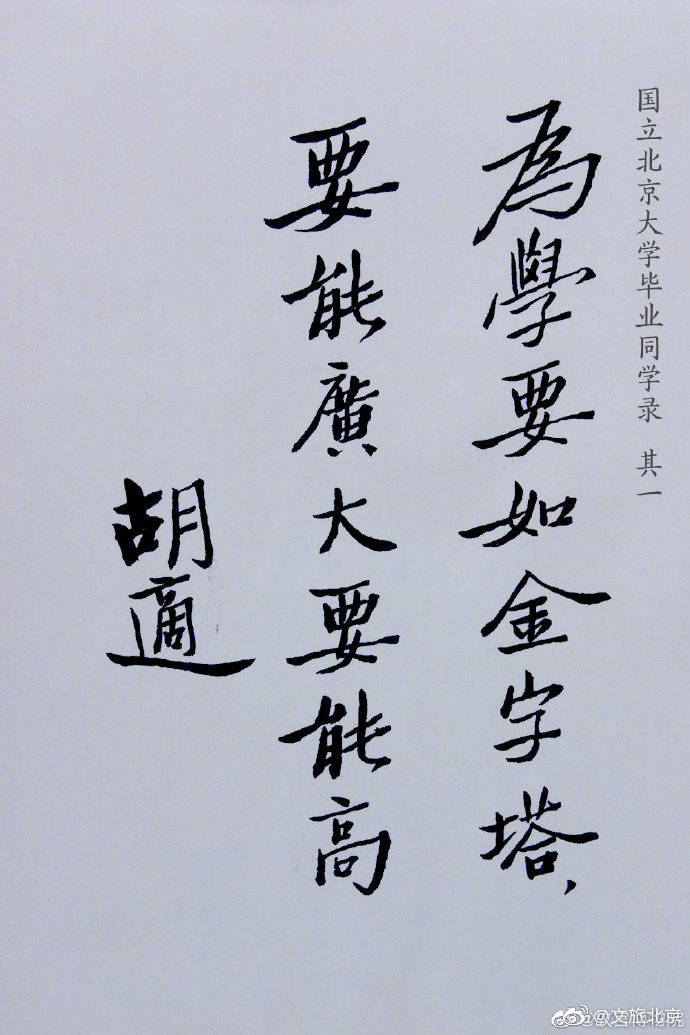 国立北京大学毕业同学录 其一
為學要如金字塔，
要能廣大要能高
胡適
@文旅北京